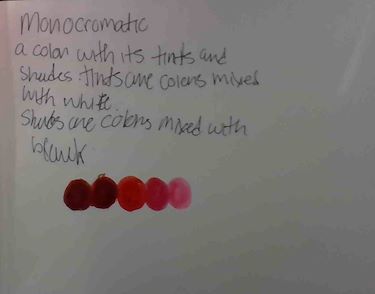 Monocromatic
a color with its tints and
shades. tints are colors mixed
with white.
shades are colors mixed with
black.